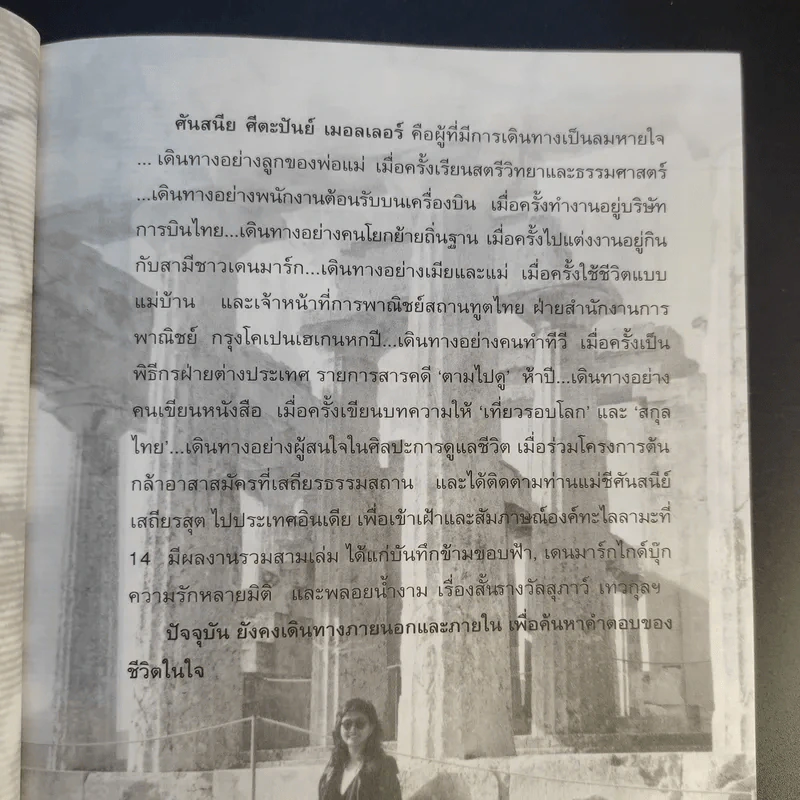 ศันสนีย ศีตะปันย์ เมอลเลอร์ คือผู้ที่มีการเดินทางเป็นลมหายใจ
... เดินทางอย่างลูกของพ่อแม่ เมื่อครั้งเรียนสตรีวิทยาและธรรมศาสตร์
...เดินทางอย่างพนักงานต้อนรับบนเครื่องบิน เมื่อครั้งทำงานอยู่บริษัท
การบินไทย...เดินทางอย่างคนโยกย้ายถิ่นฐาน เมื่อครั้งไปแต่งงานอยู่กิน
กับสามีชาวเดนมาร์ก...เดินทางอย่างเมียและแม่ เมื่อครั้งใช้ชีวิตแบบ
แม่บ้าน และเจ้าหน้าที่การพาณิชย์สถานทูตไทย ฝ่ายสำนักงานการ
พาณิชย์ กรุงโคเปนเฮเกนหกปี...เดินทางอย่างคนทำทีวี เมื่อครั้งเป็น
พิธีกรฝ่ายต่างประเทศ รายการสารคดี ‘ตามไปดู’ ห้าปี...เดินทางอย่าง
คนเขียนหนังสือ เมื่อครั้งเขียนบทความให้ ‘เที่ยวรอบโลก’ และ ‘สกุล
ไทย’...เดินทางอย่างผู้สนใจในศิลปะการดูแลชีวิต เมื่อร่วมโครงการต้น
กล้าอาสาสมัครที่เสถียรธรรมสถาน และได้ติดตามท่านแม่ชีศันสนีย์
เสถียรสุต ไปประเทศอินเดีย เพื่อเข้าเฝ้าและสัมภาษณ์องค์ทะไลลามะที่
14 มีผลงานรวมสามเล่ม ได้แก่บันทึกข้ามขอบฟ้า, เดนมาร์กไกด์บุ๊ก
ความรักหลายมิติ และพลอยน้ำงาม เรื่องสั้นรางวัลสุภาว์ เทวกุลฯ
ปัจจุบัน ยังคงเดินทางภายนอกและภายใน เพื่อค้นหาคำตอบของ
ชีวิตในใจ